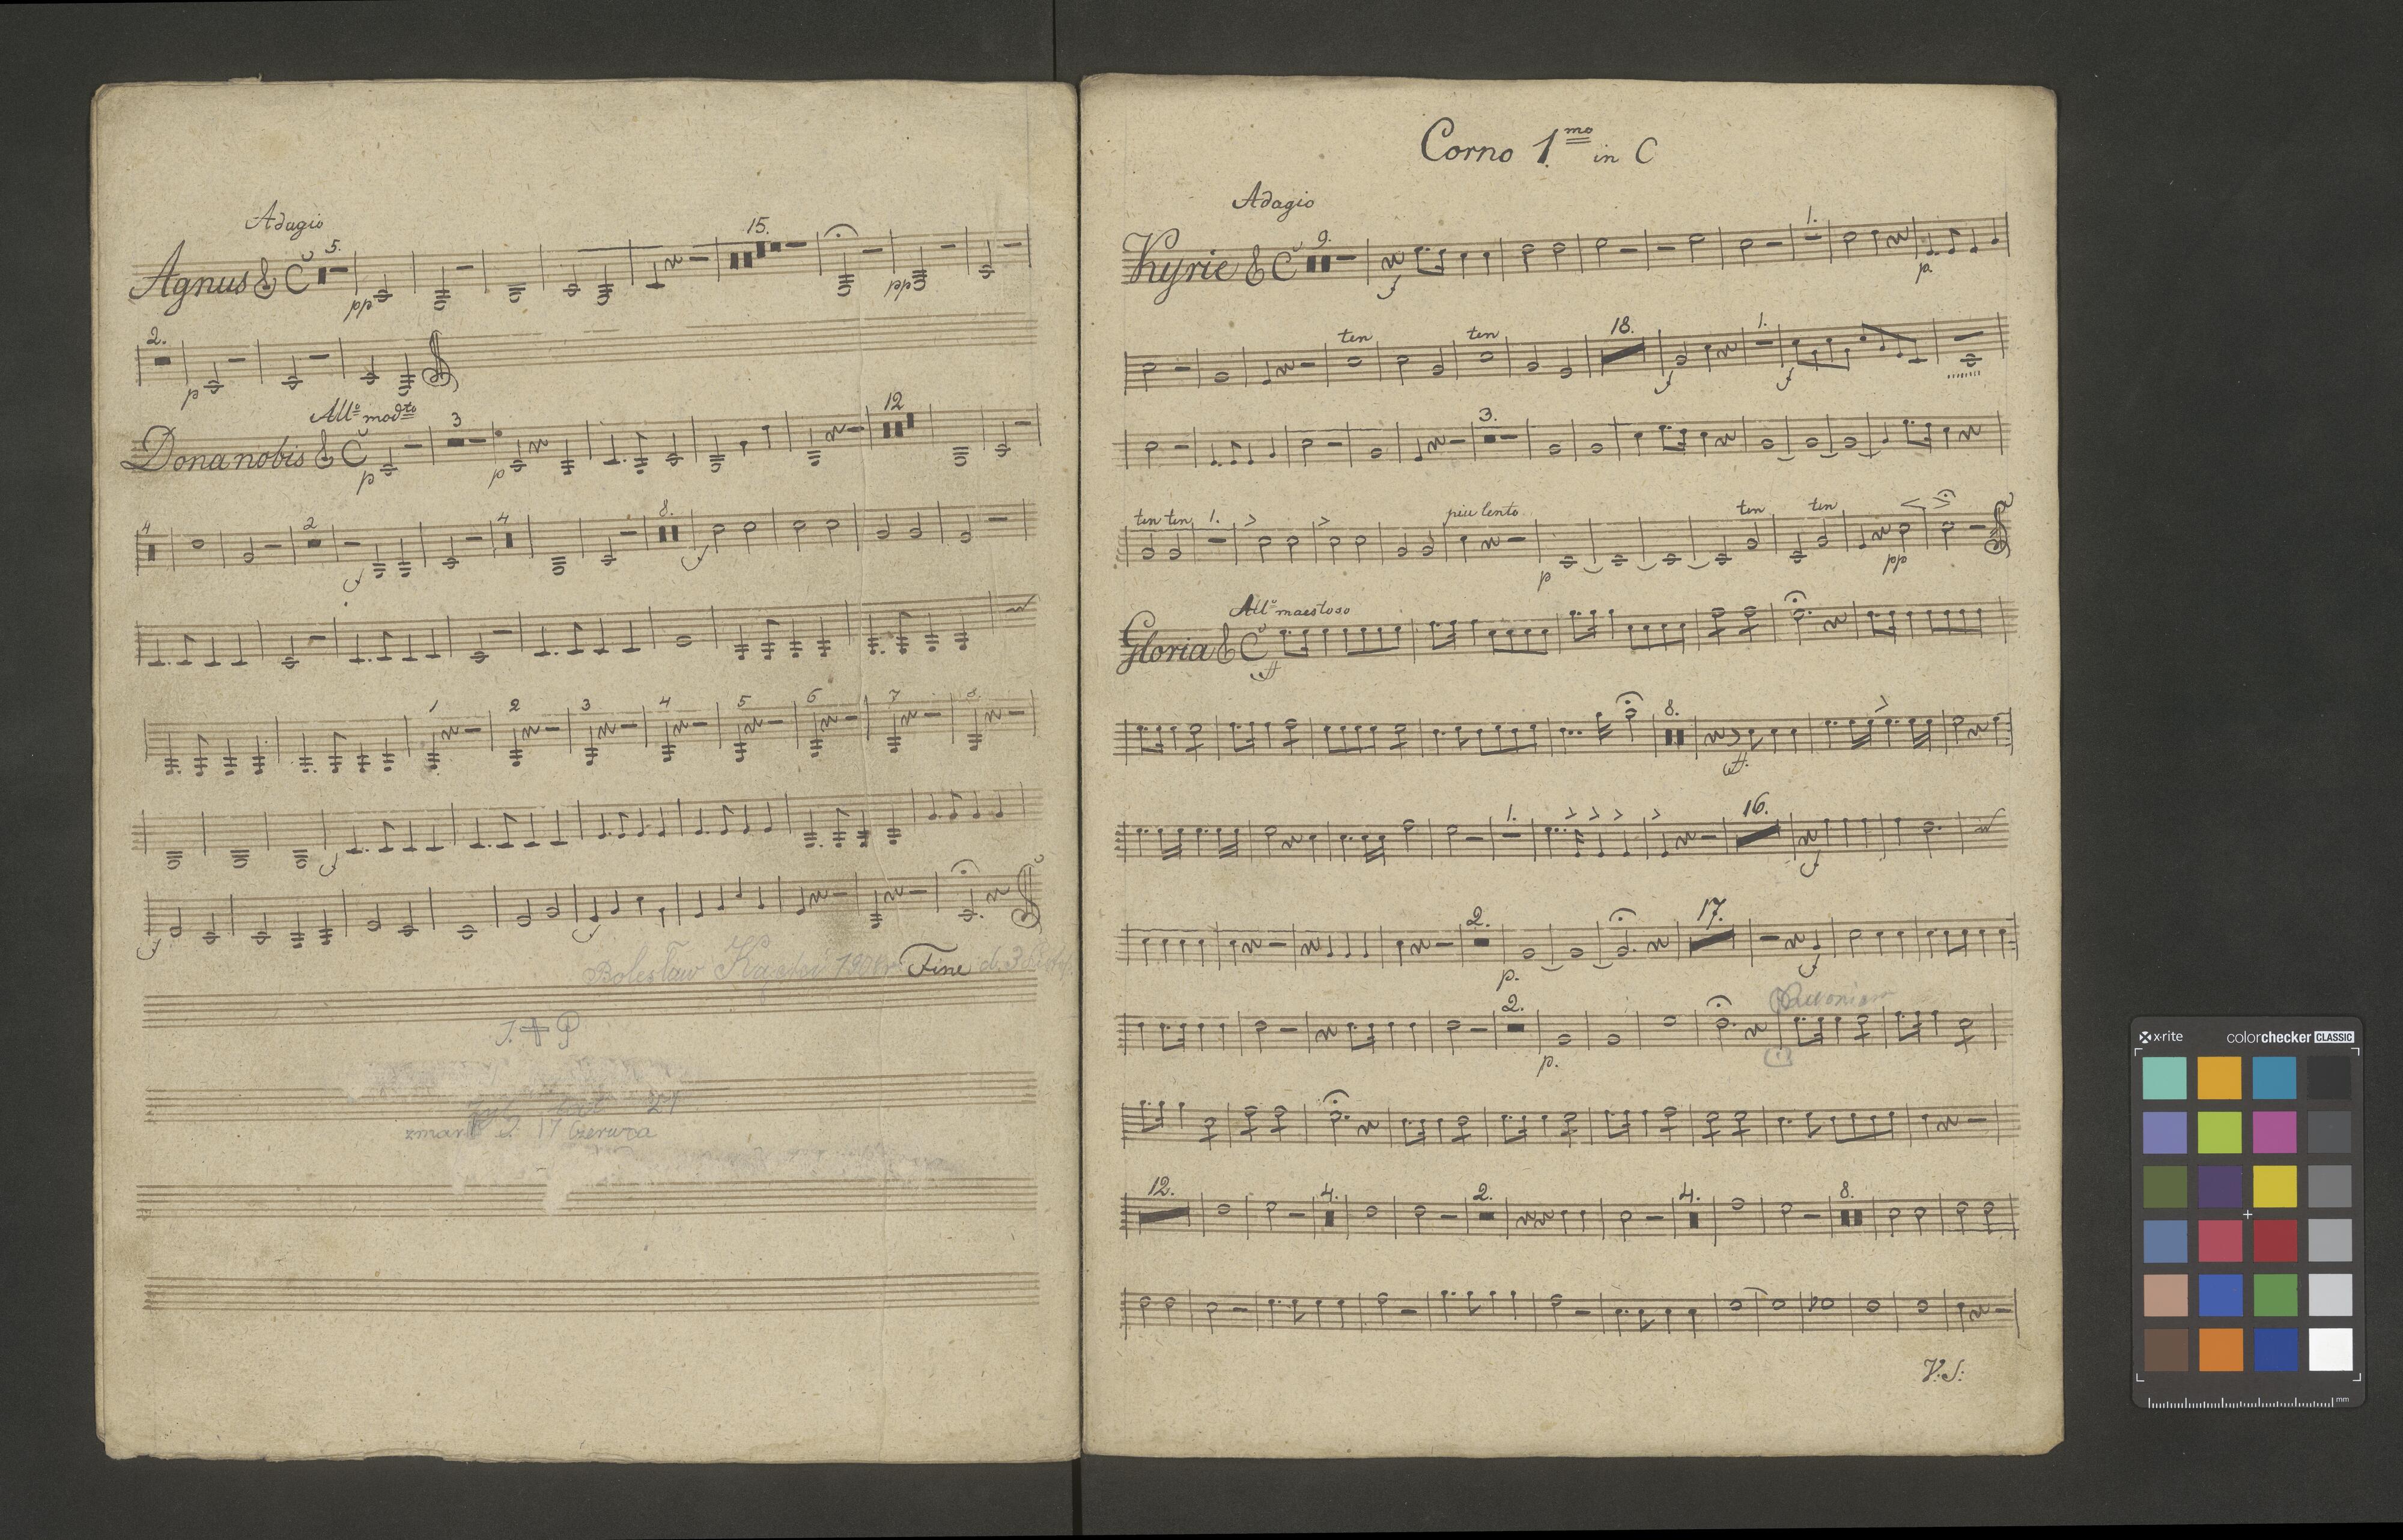 Adagio
5. 15.
Agnus C
pp pp
2.
p
All⁰ mod^to
3 12
Dona nobis C
p p
4 2 4 8.
f f
1 2 3 4 5 6 7 8.
f
f f
Bolesław Fine
J. + P
zmarł 17 Czerwca
Corno 1^mo in C
Adagio
9. 1.
Kyrie C
f p.
ten ten 18. 1.
f f
3.
ten ten 1. > > piu lento ten ten < >
p pp
All⁰ maestoso
Gloria C
ff
8. >
ff.
1. > > > > 16.
f
2. 17.
p. f
2.
p.
12. 4. 2. 4. 8.
V. S:
x-rite colorchecker CLASSIC
mm